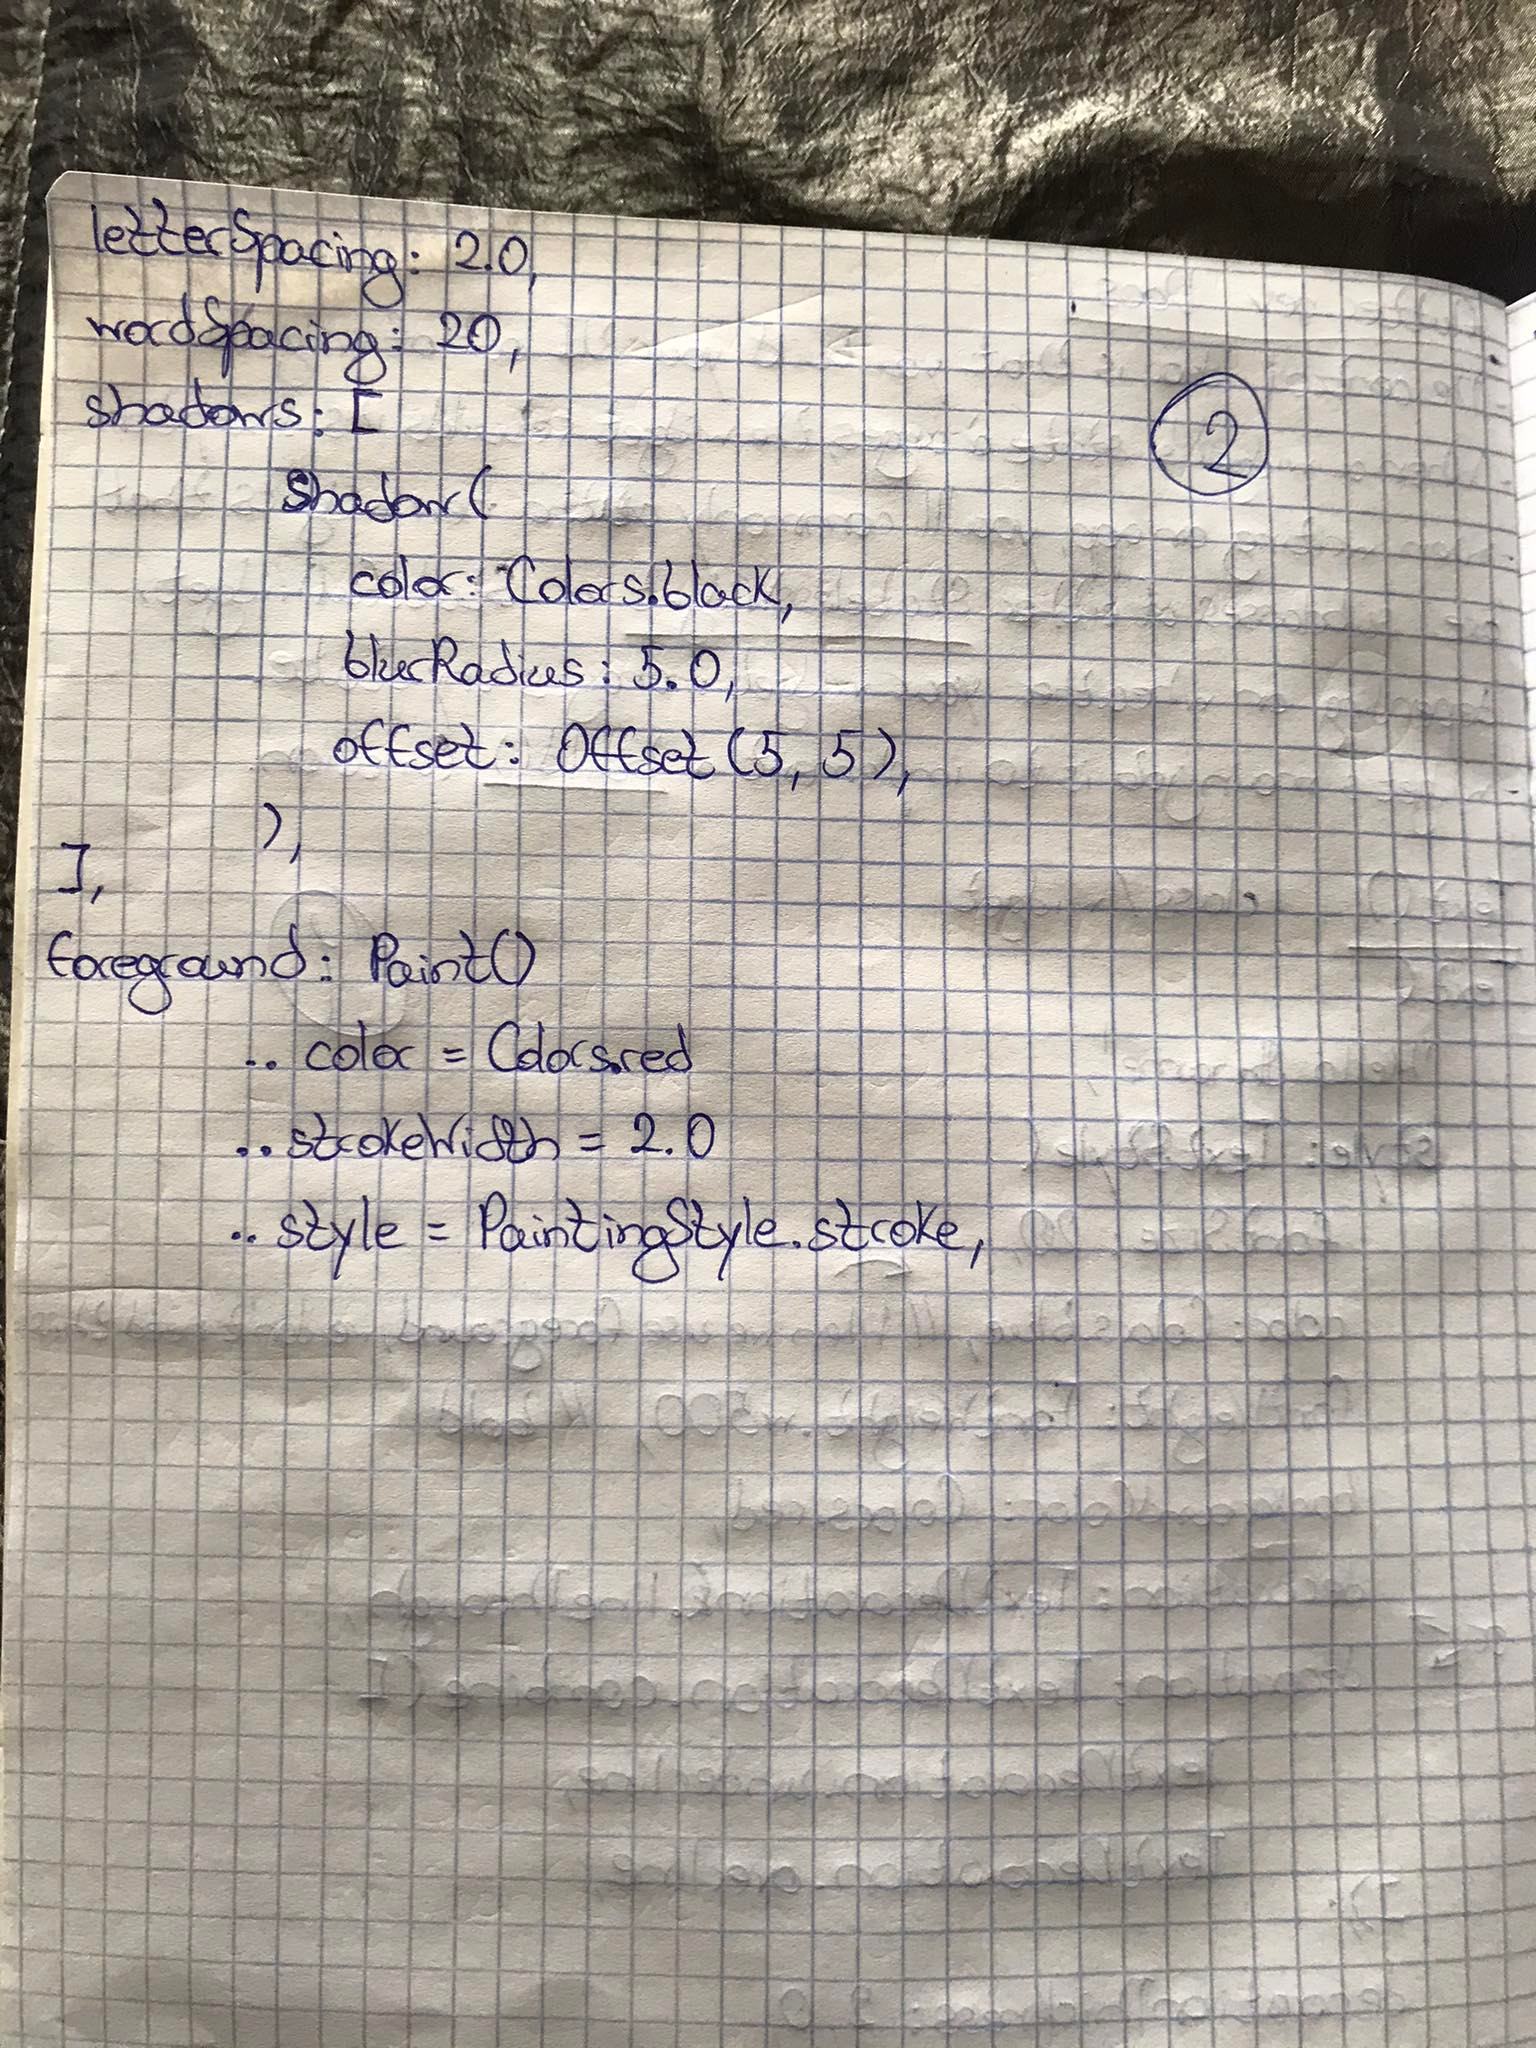 letterSpacing: 2.0,
wordSpacing: 20,
shadows: [
2
Shadow(
color: Colors.black,
blurRadius: 5.0,
offset: Offset(5, 5),
),
],
foreground: Paint()
.. color = Colors.red
.. strokeWidth = 2.0
.. style = PaintingStyle.stroke,